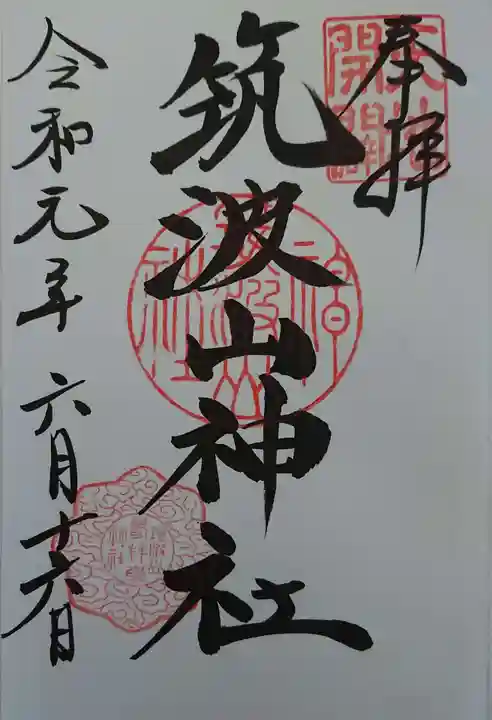 奉拝
天地開闢
筑波山神社
令和元年 六月十六日